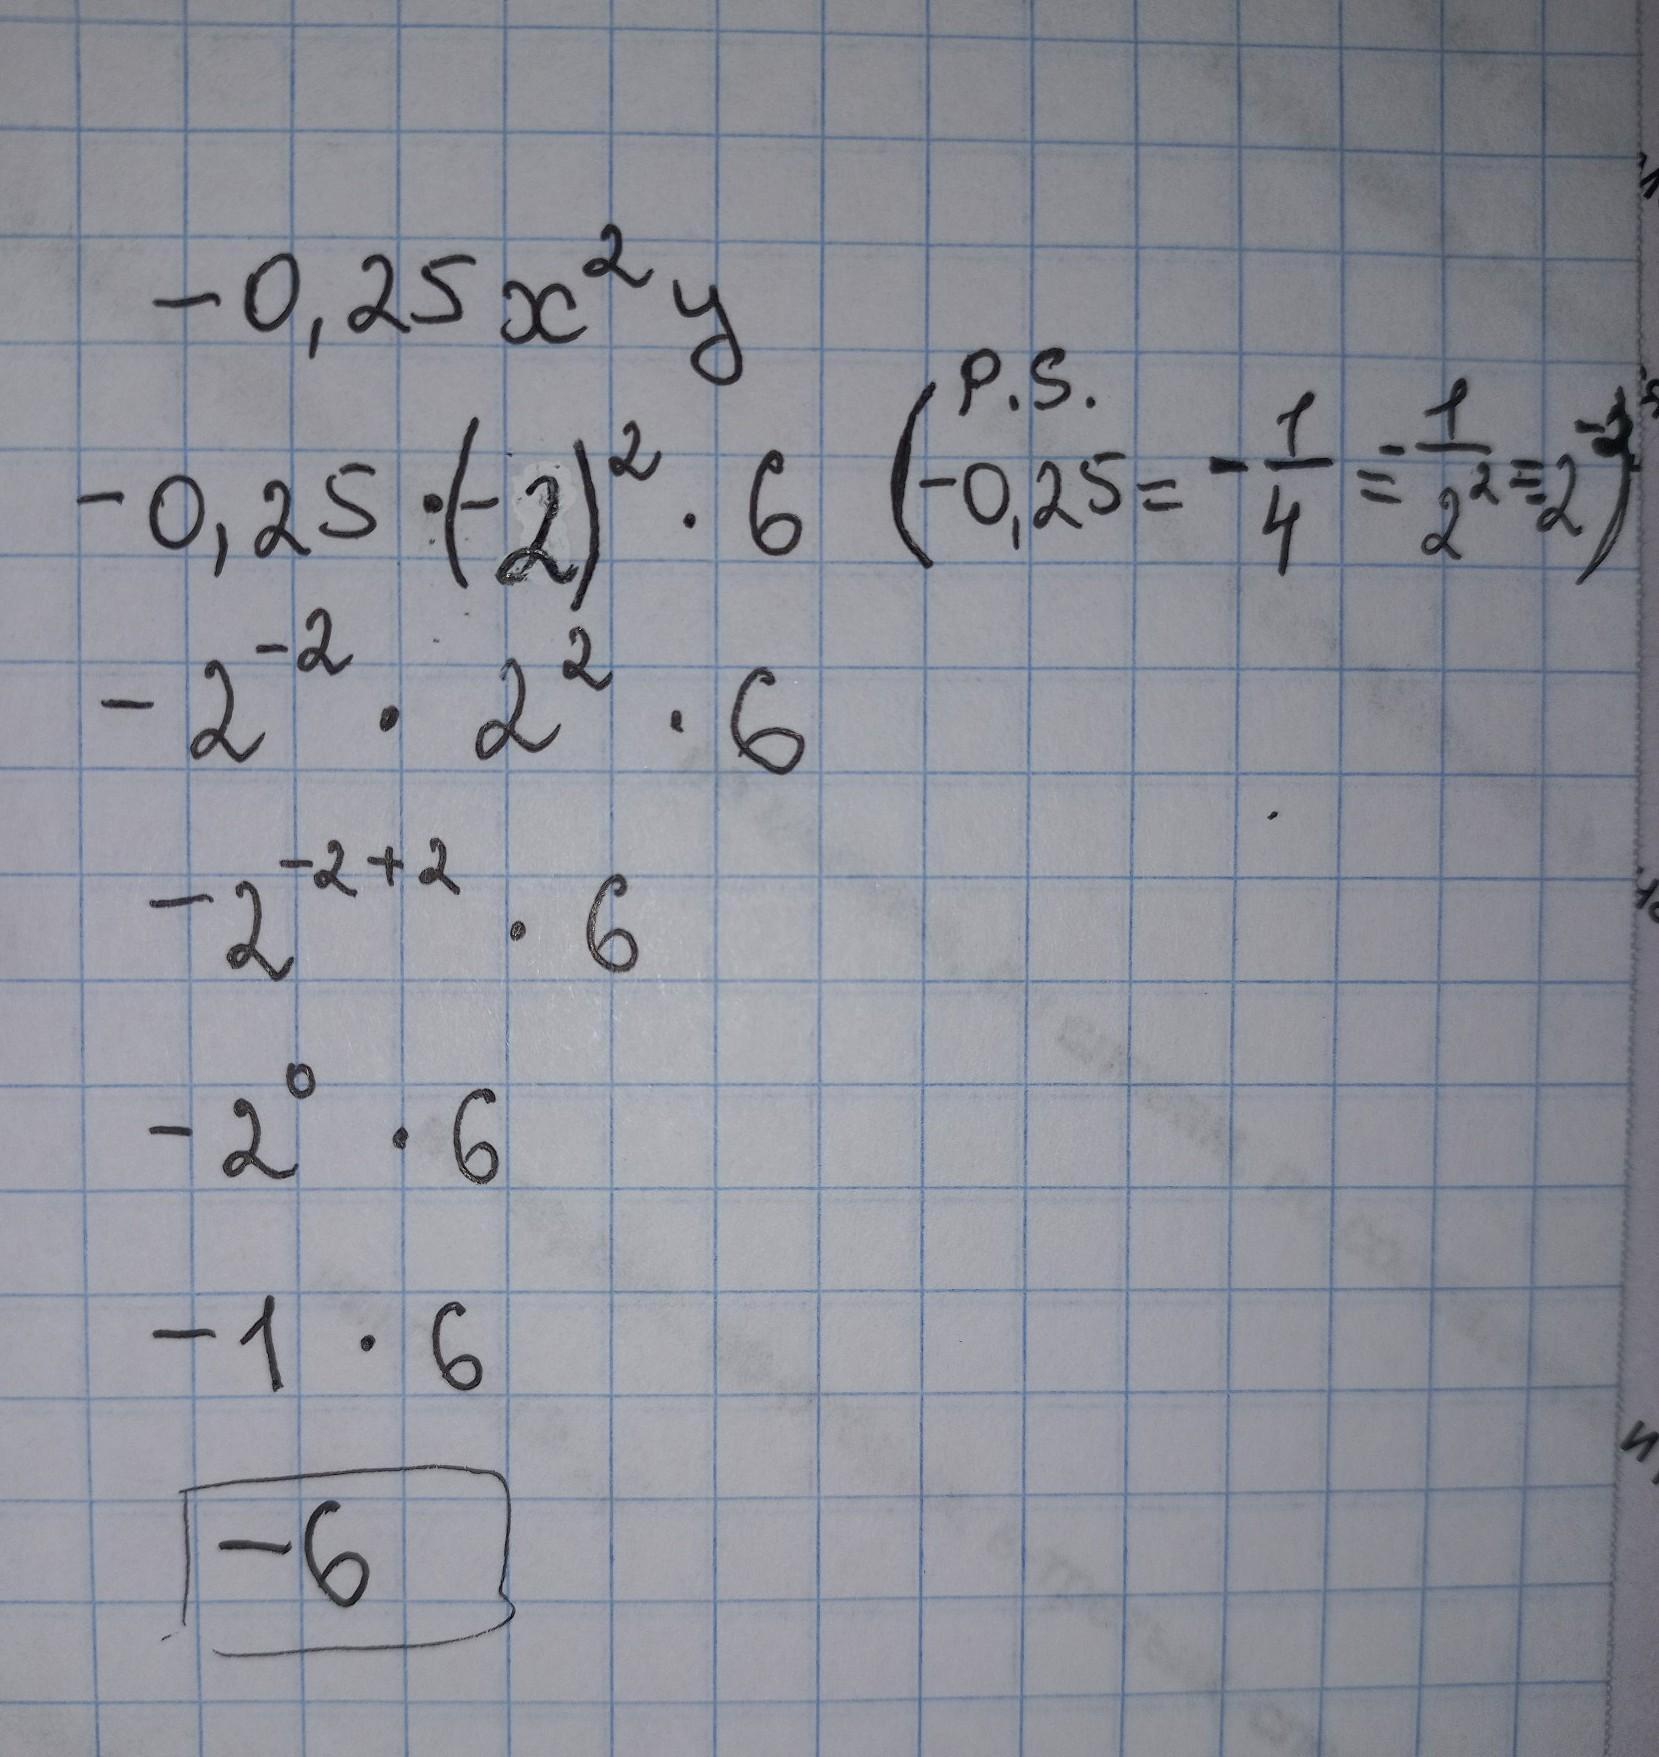 -0,25x²y
-0,25·(-2)²·6
P.S.
(-0,25=-1/4=-1/2²=-2⁻²)
-2⁻²·2²·6
-2⁻²⁺²·6
-2⁰·6
-1·6
-6